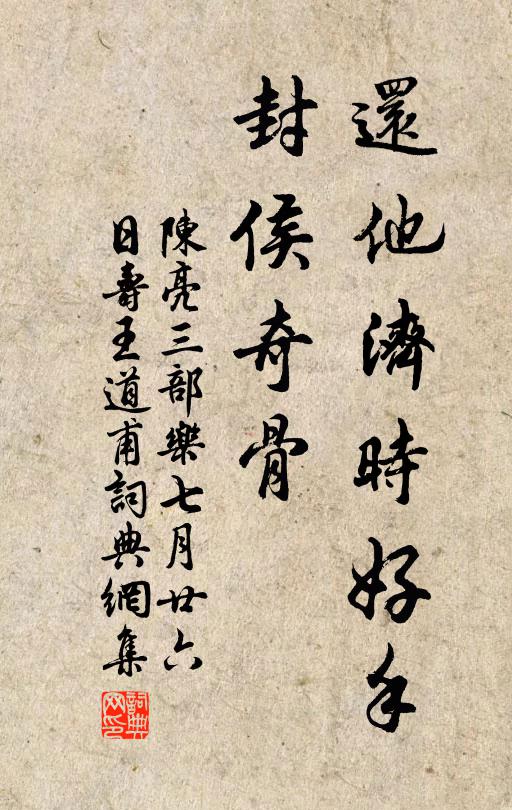 還他濟時好手
封侯奇骨
陳亮三部樂七月廿六
日壽王道甫詞典網集
詞典
网印